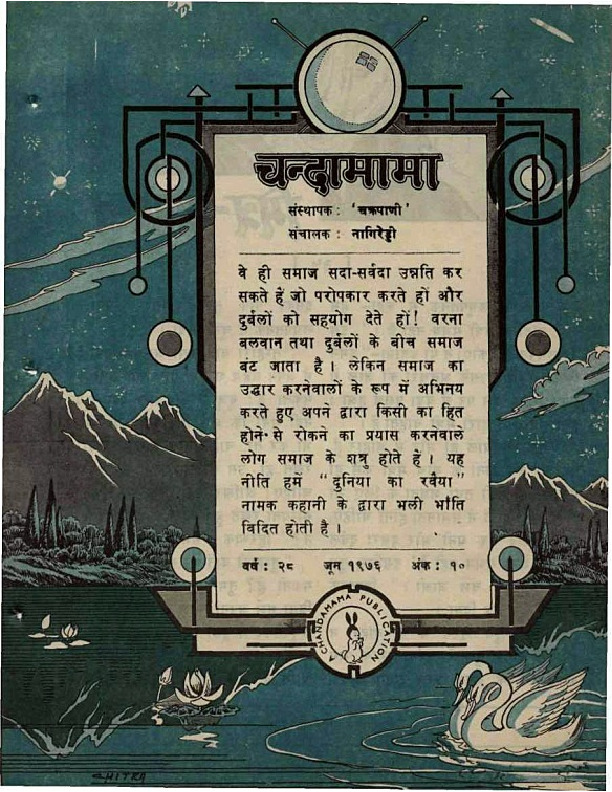 चन्दामामा
संस्थापक : 'चक्रपाणी'
संचालक : नागिरेड्डी
वे ही समाज सदा-सर्वदा उन्नति कर
सकते हैं जो परोपकार करते हों और
दुर्बलों को सहयोग देते हों! वरना
बलवान तथा दुर्बलों के बीच समाज
बंट जाता है। लेकिन समाज का
उद्धार करनेवालों के रूप में अभिनय
करते हुए अपने द्वारा किसी का हित
होने से रोकने का प्रयास करनेवाले
लोग समाज के शत्रु होते हैं। यह
नीति हमें "दुनिया का रवैया"
नामक कहानी के द्वारा भली भाँति
विदित होती है।
वर्ष : २८ जून १९७६ अंक : १०
A CHANDAMAMA PUBLICATION
CHITRA